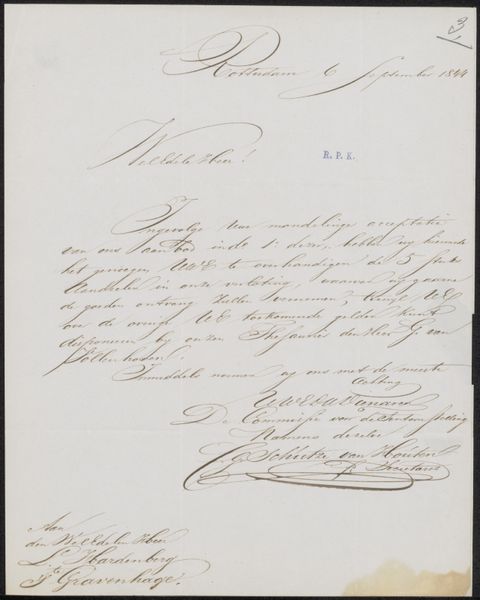 3
Rotterdam 6 September 1844
WelEdele Heer!
R. P. K.
Ingevolge Uwe mondelinge acceptatie
van ons aanbod in de hebben wy hiermede
het genoegen UWE te overhandigen de 5 stuks
in onze verloting, waarvan wy gaarne
de goeden ontvangst zullen vernemen, UWE
over de UWE toekomende gelden kunt
disponeren by onzen Thesaurier den Heer G. van
Inmiddels noemen wy ons met de meeste
Achting
UWEDW Dienaren
De Commissie van de Tentoonstelling
Namens dezelve
Schultze van Houten
Secretaris
Aan
den WelEdelen Heer
L. Hardenberg
's Gravenhage.